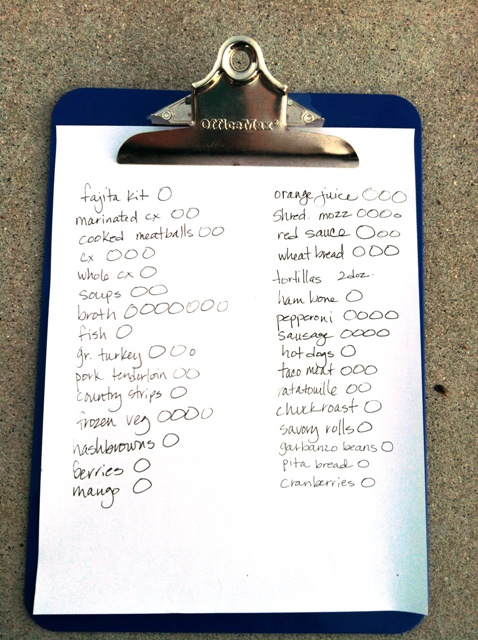 OfficeMax
fajita kit O
marinated cx OO
cooked meatballs OO
cx OOO
whole cx O
soups OO
broth OOOOOOO
fish O
gr. turkey OOO
pork tenderloin OO
country strips O
frozen veg OOOO
hashbrowns O
berries O
mango O
orange juice OOO
shred. mozz OOOO
red sauce OOO
wheat bread OOO
tortillas 2doz.
ham bone O
pepperoni OOOO
sausage OOOO
hot dogs O
taco meat OOO
ratatouille OO
chuckroast O
savory rolls O
garbanzo beans O
pita bread O
cranberries O